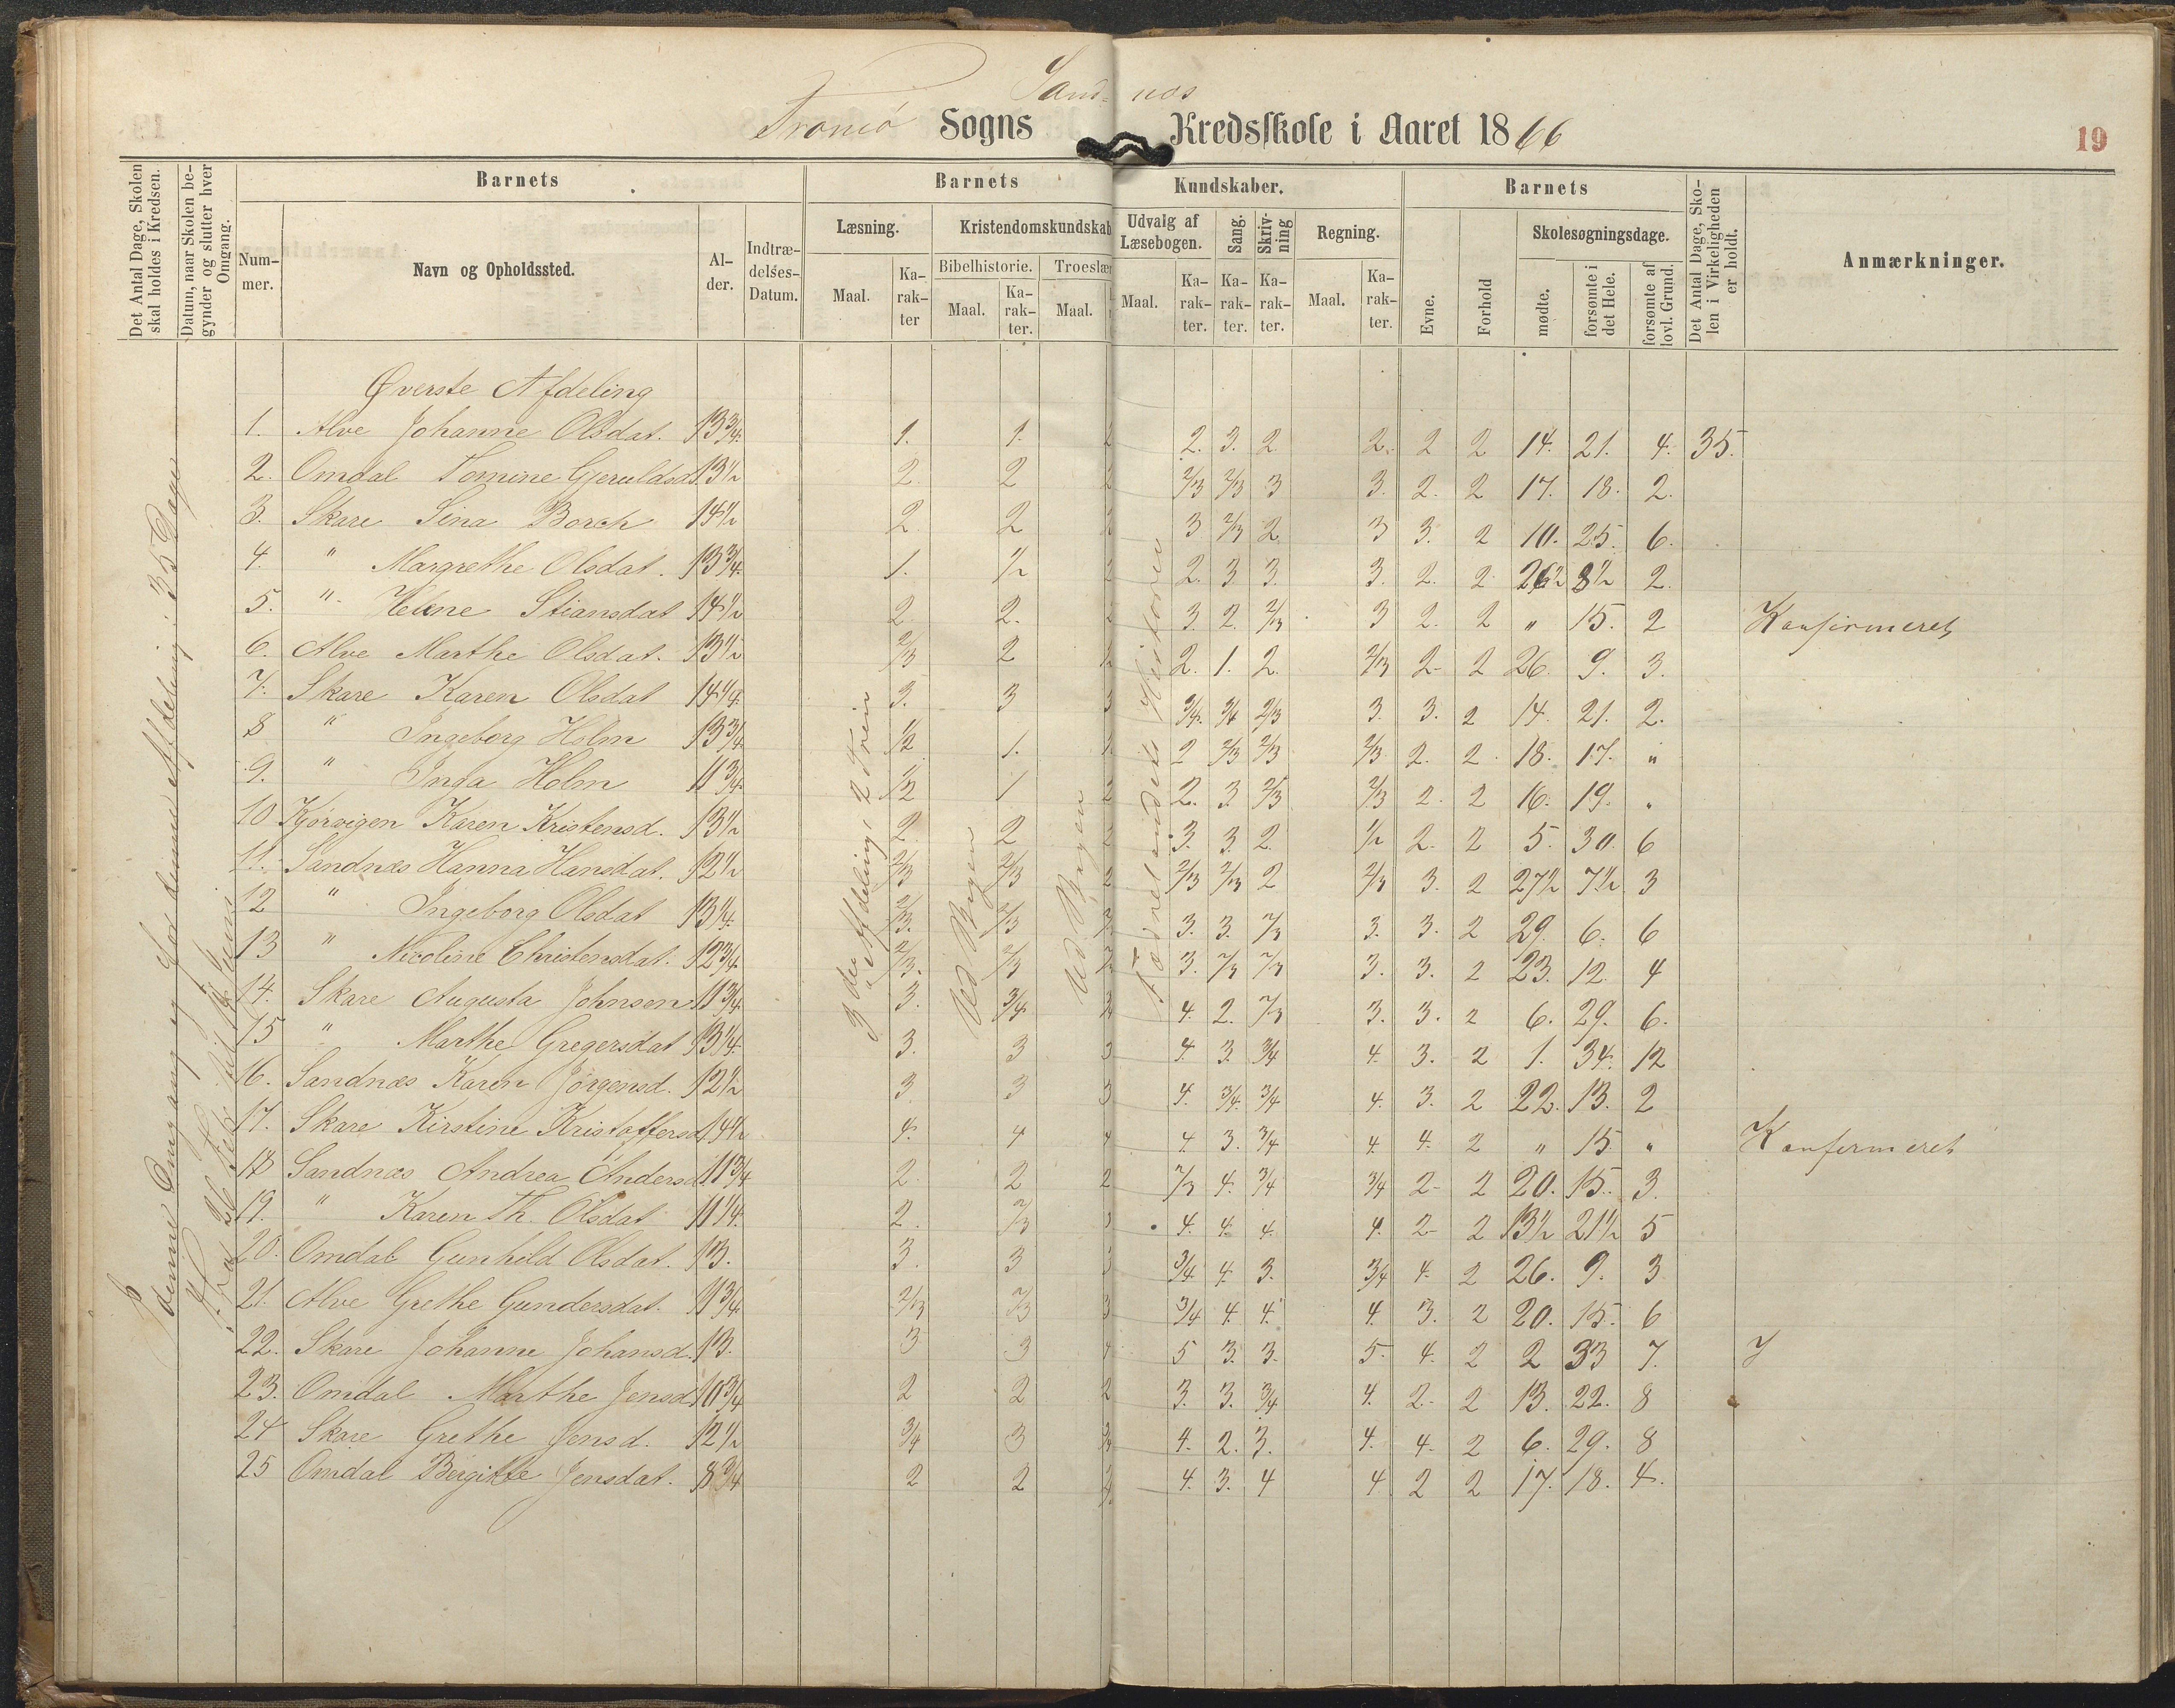 Sandnæs
Tromø Sogns Kredsskole i Aaret 1866
19
Det Antal Dage, Skolen skal holdes i Kredsen.
Datum, naar Skolen begynder og slutter hver Omgang.
Barnets
Barnets Kundskaber.
Barnets
Det Antal Dage, Skolen i Virkeligheden er holdt.
Anmærkninger.
Nummer.
Navn og Opholdssted.
Alder.
Indtrædelses-Datum.
Læsning.
Kristendomskundskab
Udvalg af Læsebogen.
Sang.
Skrivning
Regning.
Evne.
Forhold
Skolesøgningsdage.
Bibelhistorie.
Troeslær
Maal.
Karakter
Maal.
Karakter.
Maal.
Maal.
Karakter.
Karakter.
Karakter.
Maal.
Karakter.
mødte.
forsømte i det Hele.
forsømte af lovl. Grund.
Øverste Afdeling
1. Alve Johanne Olsdat. 13 3/4 1. 1. 2 2. 3. 2 2. 2 2 14. 21. 4. 35.
2. Omdal Tomine Gjeruldsd. 13 1/2 2. 2 2 2/3 2/3 3 3. 2. 2 17. 18. 2.
3. Skare Sina Borch 14 1/2 2. 2 2 3 2/3 2 3 3. 2 10. 25. 6.
4. " Margrethe Olsdat. 13 3/4 1. 1/2 2 2. 3. 3. 3. 2. 2 26 1/2 8 1/2 2.
5. " Helene Stiansdat 14 1/2 2. 2. 3. 2. 2/3 3 2. 2 " 15. 2 Konfirmeret
6. Alve Marthe Olsdat. 13 1/2 2/3 2 2. 1. 2. 2/3 2 2 26. 9. 3.
7. Skare Karen Olsdat 14 1/4 3. 3 3 3/4 3/4 2/3 3. 3. 2 14. 21. 2.
8 " Ingeborg Holm 13 3/4 1/2 1. 1. 2 2/3 2/3 2/3 2. 2. 18. 17. "
9. " Inga Holm 11 3/4 1/2 1 2 2. 3. 2/3 2/3 2. 2 16. 19. "
10 Kjørvigen Karen Kristensd. 13 1/2 2. 2 2 3. 3. 2. 1/2 2. 2 5. 30. 6
11. Sandnæs Hanna Hansdat. 12 1/2 2/3 2/3 2 2/3 2/3 2 2/3 3. 2 27 1/2 7 1/2 3
12 " Ingeborg Olsdat 13 1/4 2/3. 2/3 3. 3. 2/3 3. 3. 2 29. 6. 6
13 " Nicoline Christensdat. 12 3/4 2/3. 2/3 3. 2/3 2/3 3. 3. 2 23. 12. 4
14. Skare Augusta Johnsen 11 3/4 3. 3/4 4. 2. 2/3 3. 3. 2 6. 29. 6.
15 " Marthe Gregersdat 13 1/4 3. 3 3 4. 3. 3/4 4. 3. 2 1. 34. 12
16. Sandnæs Karen Jörgensd. 12 1/2 3. 3 3 4. 3/4. 3/4 4. 3. 2 22. 13. 2
17. Skare Kirstine Kristoffersd. 14 1/2 4. 4 4 4. 3. 3/4 4. 4. 2 " 15. " Konfirmeret
18 Sandnæs Andrea Andersd. 11 3/4 2. 2 2 2/3 4. 3/4 3/4 2 2 20. 15. 3.
19. " Karen Th. Olsdat 11 1/4 2. 2/3 3 4. 4. 4. 4. 2 2 13 1/2 21 1/2 5
20. Omdal Gunhild Olsdat. 13. 3. 3 3 3/4 4. 3. 3/4 4. 2 26. 9. 3
21. Alve Grethe Gundersdat. 11 3/4 2/3 2/3 3 3/4 4. 4. 4. 3. 2 20. 15. 6
22. Skare Johanne Johansd. 13. 3 3 4 5 3. 3. 5. 4. 2 2 33 7.
23. Omdal Marthe Jensd. 10 3/4 2 2 2 3. 3. 3/4 4. 2. 2 13. 22. 8
24 Skare Grethe Jensd. 12 1/2 3/4 3 4. 2. 3. 4. 4. 2 6. 29. 8
25 Omdal Bergitte Jensdat. 8 3/4 2 2 4. 3. 4 4 2 2 17. 18. 4.
denne Omgang og for denne Afdeling: 35 Dage
Fra 26 Feb. til 14 Juni
3die Afdeling, 2 Trin
Ud Bogen
Ud Bogen
Fædrelandets Historie